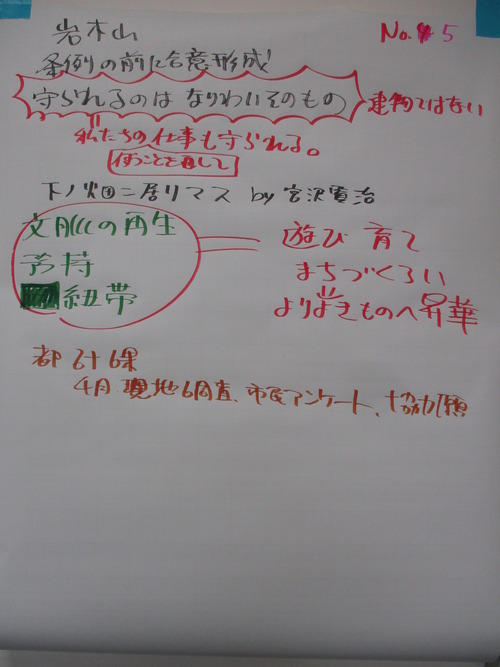 岩木山
No. 5
条例の前に合意形成!
守られるのは なりわいそのもの
建物ではない
私たちの仕事も守られる。
使うことを通して
下ノ畑ニ居リマス by 宮沢賢治
文脈の再生
矜持
紐帯
遊び 育て
まちづくろい
よりよきものへ昇華
都計課
4月 現地調査、市民アンケート、協力願